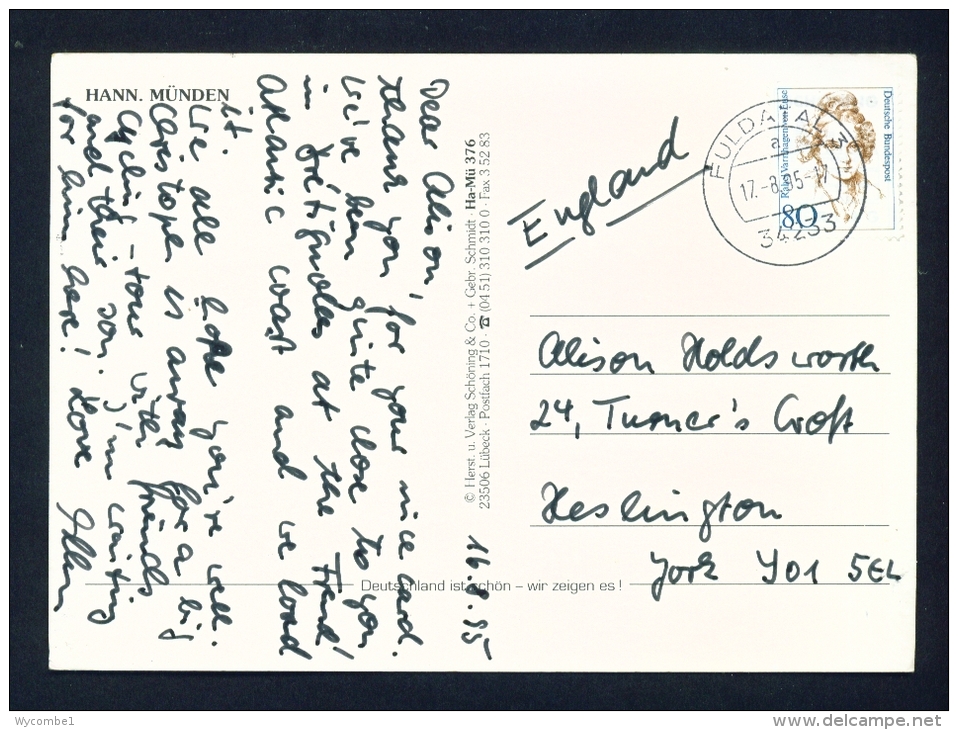 HANN. MÜNDEN
Dear Alison,
thank you for your nice card.
We've been quite close to you
in Brétignolles at the French
Atlantic coast and we loved
it.
We all hope you're well.
Christoph is away for a big
cycling-tour with friends
and their son. I'm waiting
for him here! Love
16.8.95
© Herst. u. Verlag Schöning & Co. + Gebr. Schmidt · Ha-Mü 376
23506 Lübeck · Postfach 1710 · ☎ (04 51) 310 310 0 · Fax 3 52 83
Deutschland ist schön – wir zeigen es !
England
Deutsche Bundespost
Rahel Varnhagen von Ense
80
FULDATAL
17.-8.95-17
34233
Alison Holdsworth
24, Turner's Croft
Heslington
York YO1 5EL
Wycombe1
www.delcampe.net